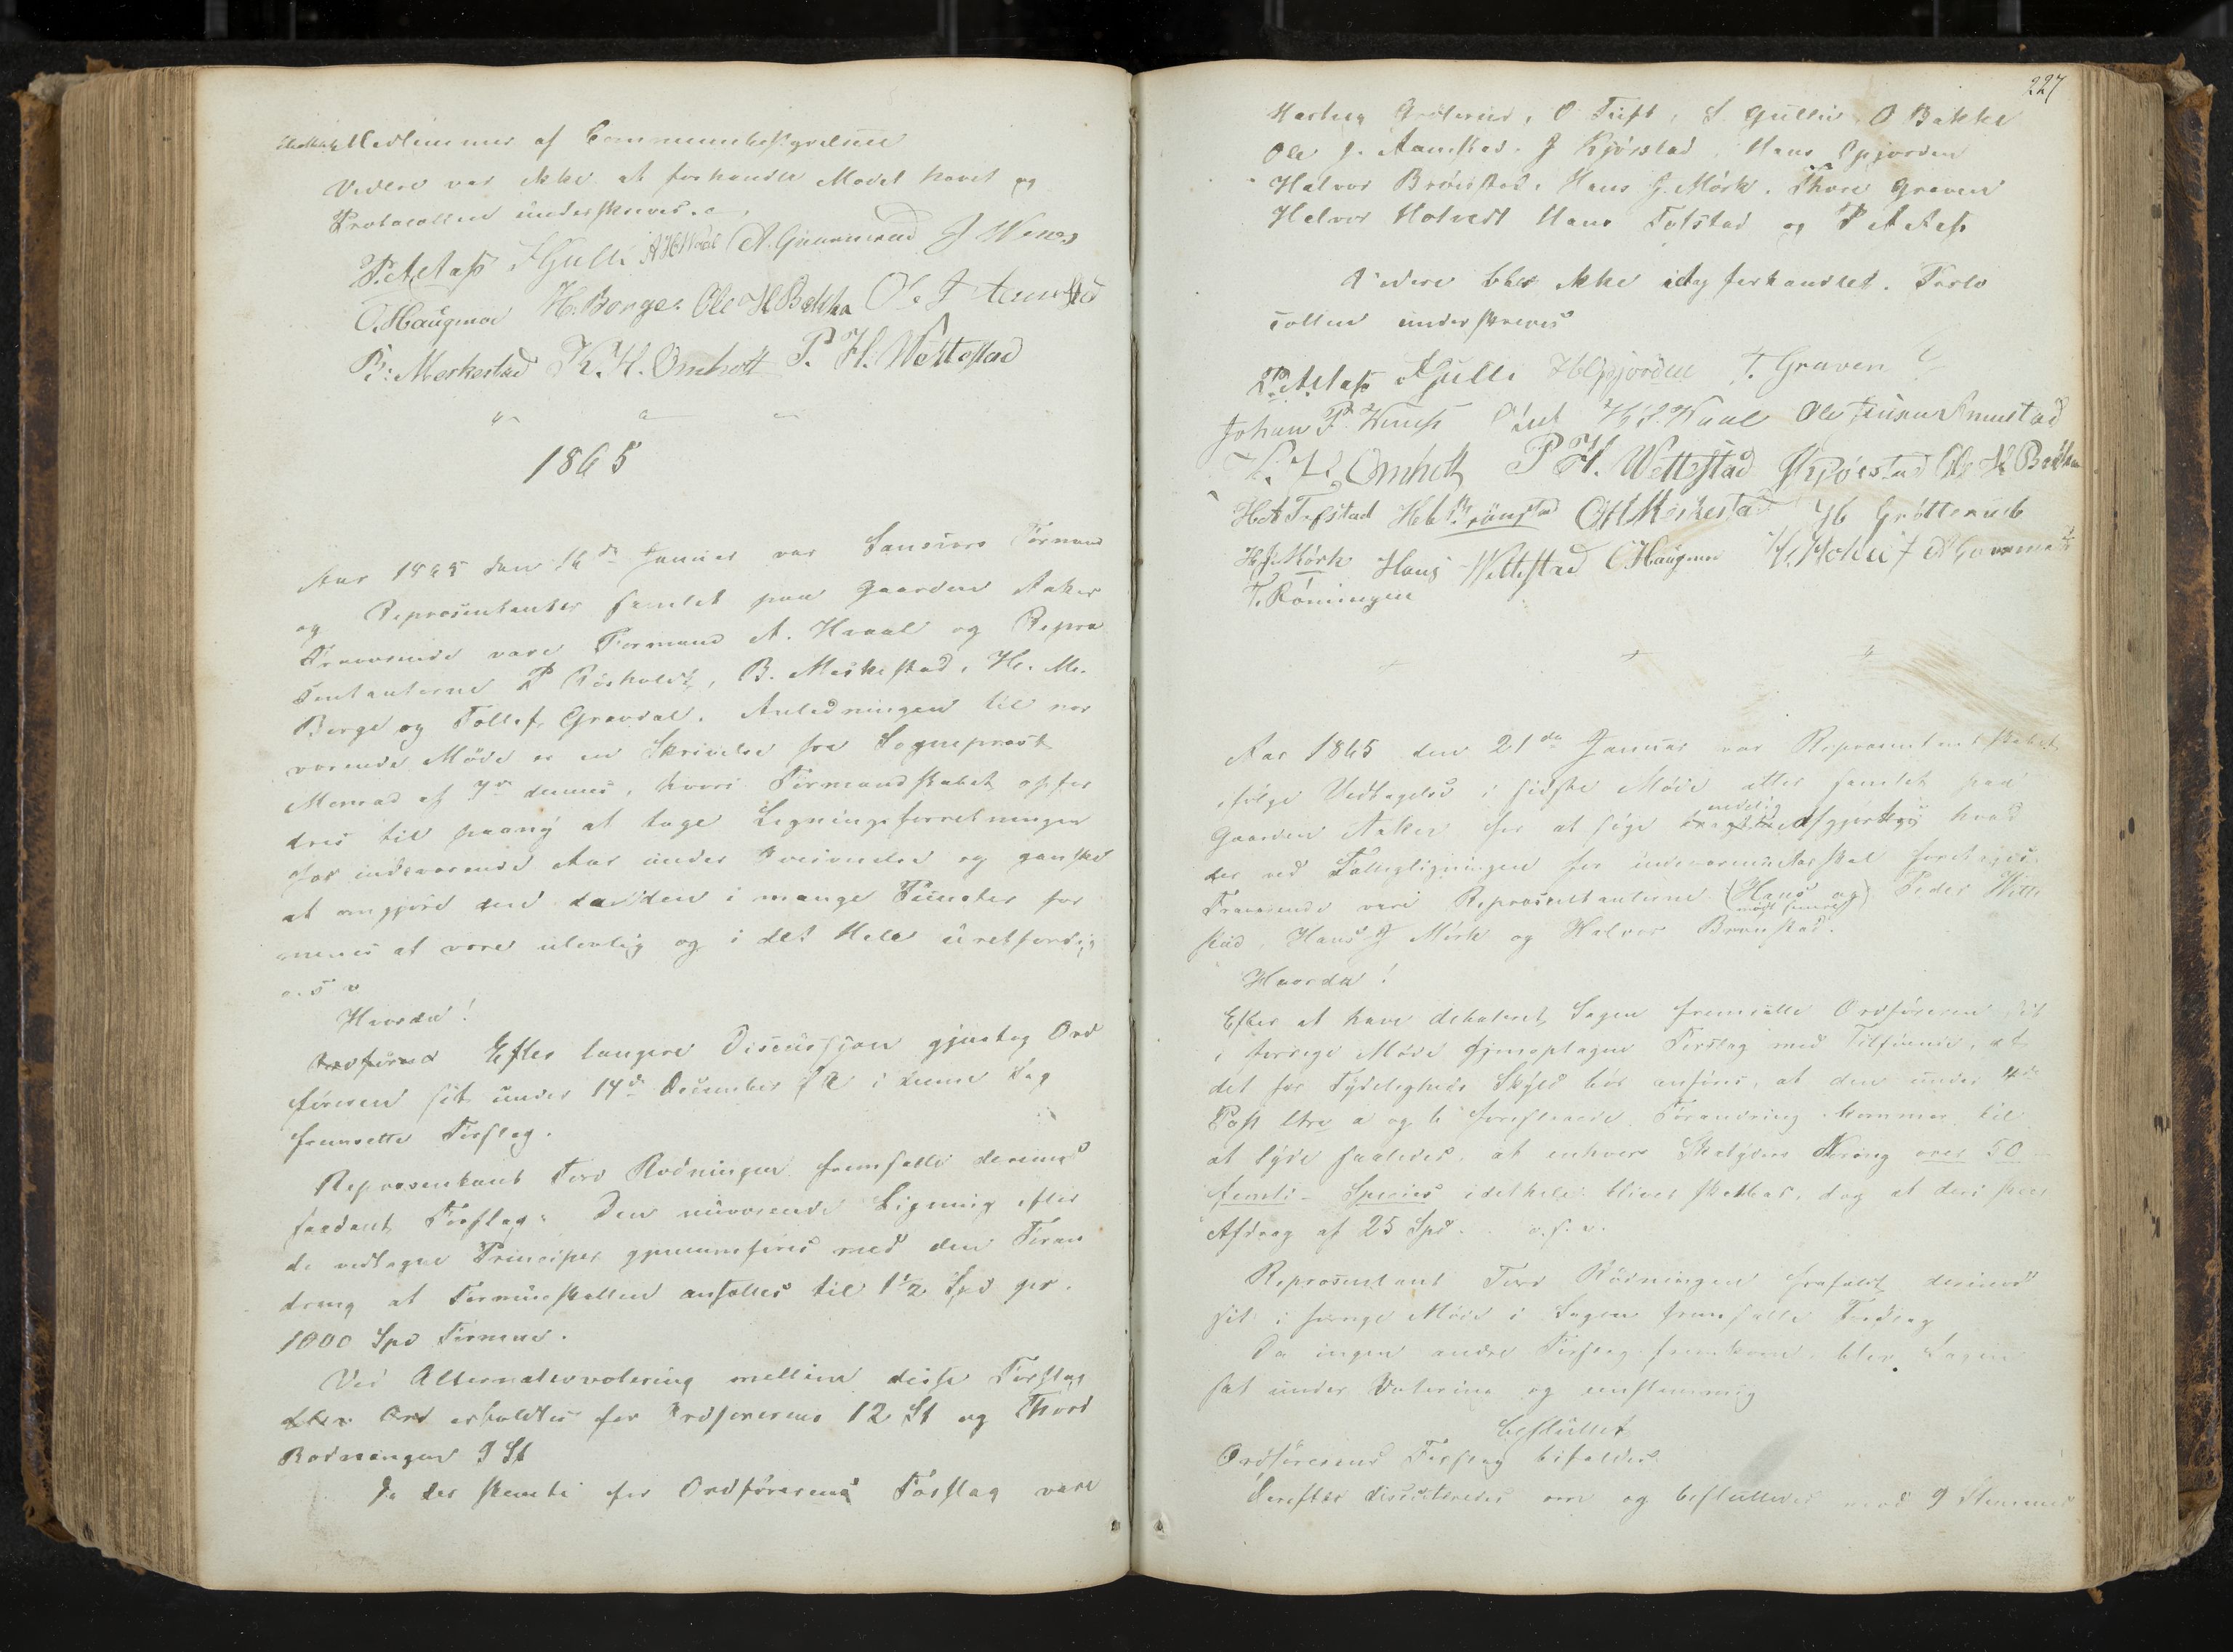 Medlemmer af Communebestyrelsen
Videre var ikke at forhandle Mødet hævet og
Protocollen underskreves.
P. A. Aas S Gulli A. Gunnerud J Weness
O. Haugmoe H. Borge. Ole H Bakka Ole J Aamestad
B: Meskestad K. H. Omholt P. H. Wettestad
1865
Aar 1865 den 16de Januar var Sandsvers Formænd
og Repræsentanter samlet paa Gaarden Aaker
Fraværende vare Formand A. Hvaal og Repræ
sentanterne P Røsholdt, B. Meskestad, H. M.
Borge og Tollef Gravdal. Anledningen til nær
værende Møde er en Skrivelse fra Sogneprest
Monrad af 7de dennes, hvori Formandskabet opfor
dres til paany at tage Ligningsforretningen
for indeværende Aar under Overveielse og ganske
at omgjøre den da den i mange Puncter for
menes at være ulovlig og i det Hele uretfærdig
o. s v
Hvorda!
Efter længere Discussion gjentog Ord
føreren sit under 14de December f A i denne Sag
fremsatte Forslag.
Repræsentant Tord Rødningen fremsatte derimod
saadant Forslag: Den nuværende Ligning efter
de vedtagne Principer gjennemføres med den Foran
dring at Formueskatten ansættes til 1 1/2 Spd pr.
1000 Spd Formue.
Ved Alternativvotering mellem disse Forslag
blev Ord erholdtes for Ordførerens 12 St og Thord
Rødningen 9 St
De der stemte for Ordførerens Forslag vare
227
Grøtterud, O Tuft, S. Gulli, O Bakke
Ole J. Aamestad. J Kjørstad. Hans Opjorden
Halvor Brønstad. Hans J. Mørk. Thore Graven
Halvor Holtvedt Hans Tufstad og P A Aas
Videre blev ikke idag forhandlet. Proto
collen underskreves
P. A. Aas S Gulli H Opjorden T. Graven
Johan P. Weness Ole Jensen Aamestad
K. H. Omholt P H. Wettestad J Kjørstad Ole H Bakka
H A Tufstad Brønstad Meskestad Grøtterud
H. J. Mørk Hans Wettestad O Haugmoe
T. Røningen
Aar 1865 den 21de Januar var Repræsentantskabet
ifølge Vedtagelse i sidste Møde atter samlet paa
Gaarden Aaker for at søge endelig afgjort hvad
der ved Fattigligningen for indeværende Aar skal foretages.
Fraværende vare Repræsentanterne (Hans og) Peder Witte
mødt senere
stad, Hans J Mørk og Halvor Brønstad.
Hvorda!
Efter at have debateret Sagen fremsatte Ordføreren sit
i forrige Møde gjentagne Forslag med Tilføiende, at
det for Tydeligheds Skyld bør anføres, at den under 4de
Post Litra a og b foreslaaede Forandring kommer til
at lyde saaledes, at enhvers Skatyders Næring over 50
femti Species idethele bliver skatbar, dog at deri skeer
Afdrag af 25 Spd. o. s. v.
Repræsentant Tord Rødningen frafaldt derimod
sit i forrige Møde i Sagen fremsatte Forslag
Da ingen andre Forslag fremkom, blev Sagen
sat under Votering og eenstemmig
besluttet
Ordførerens Forslag bifaldes.
Derefter discuteredes om og besluttedes mod 9 Stemmer